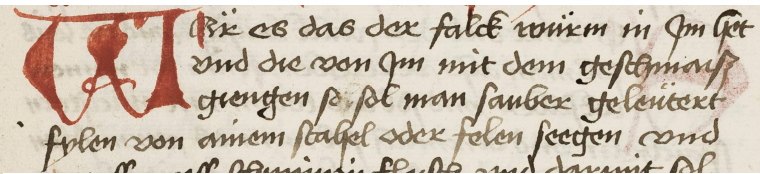 Wär es das der falck würm in Jm het
vnd die von Jm mit dem geschmaiß
giengen so sol man sauber geleütert
fylen von ainem stahel oder felen seegen vnd
flaisch vnd darmit sol